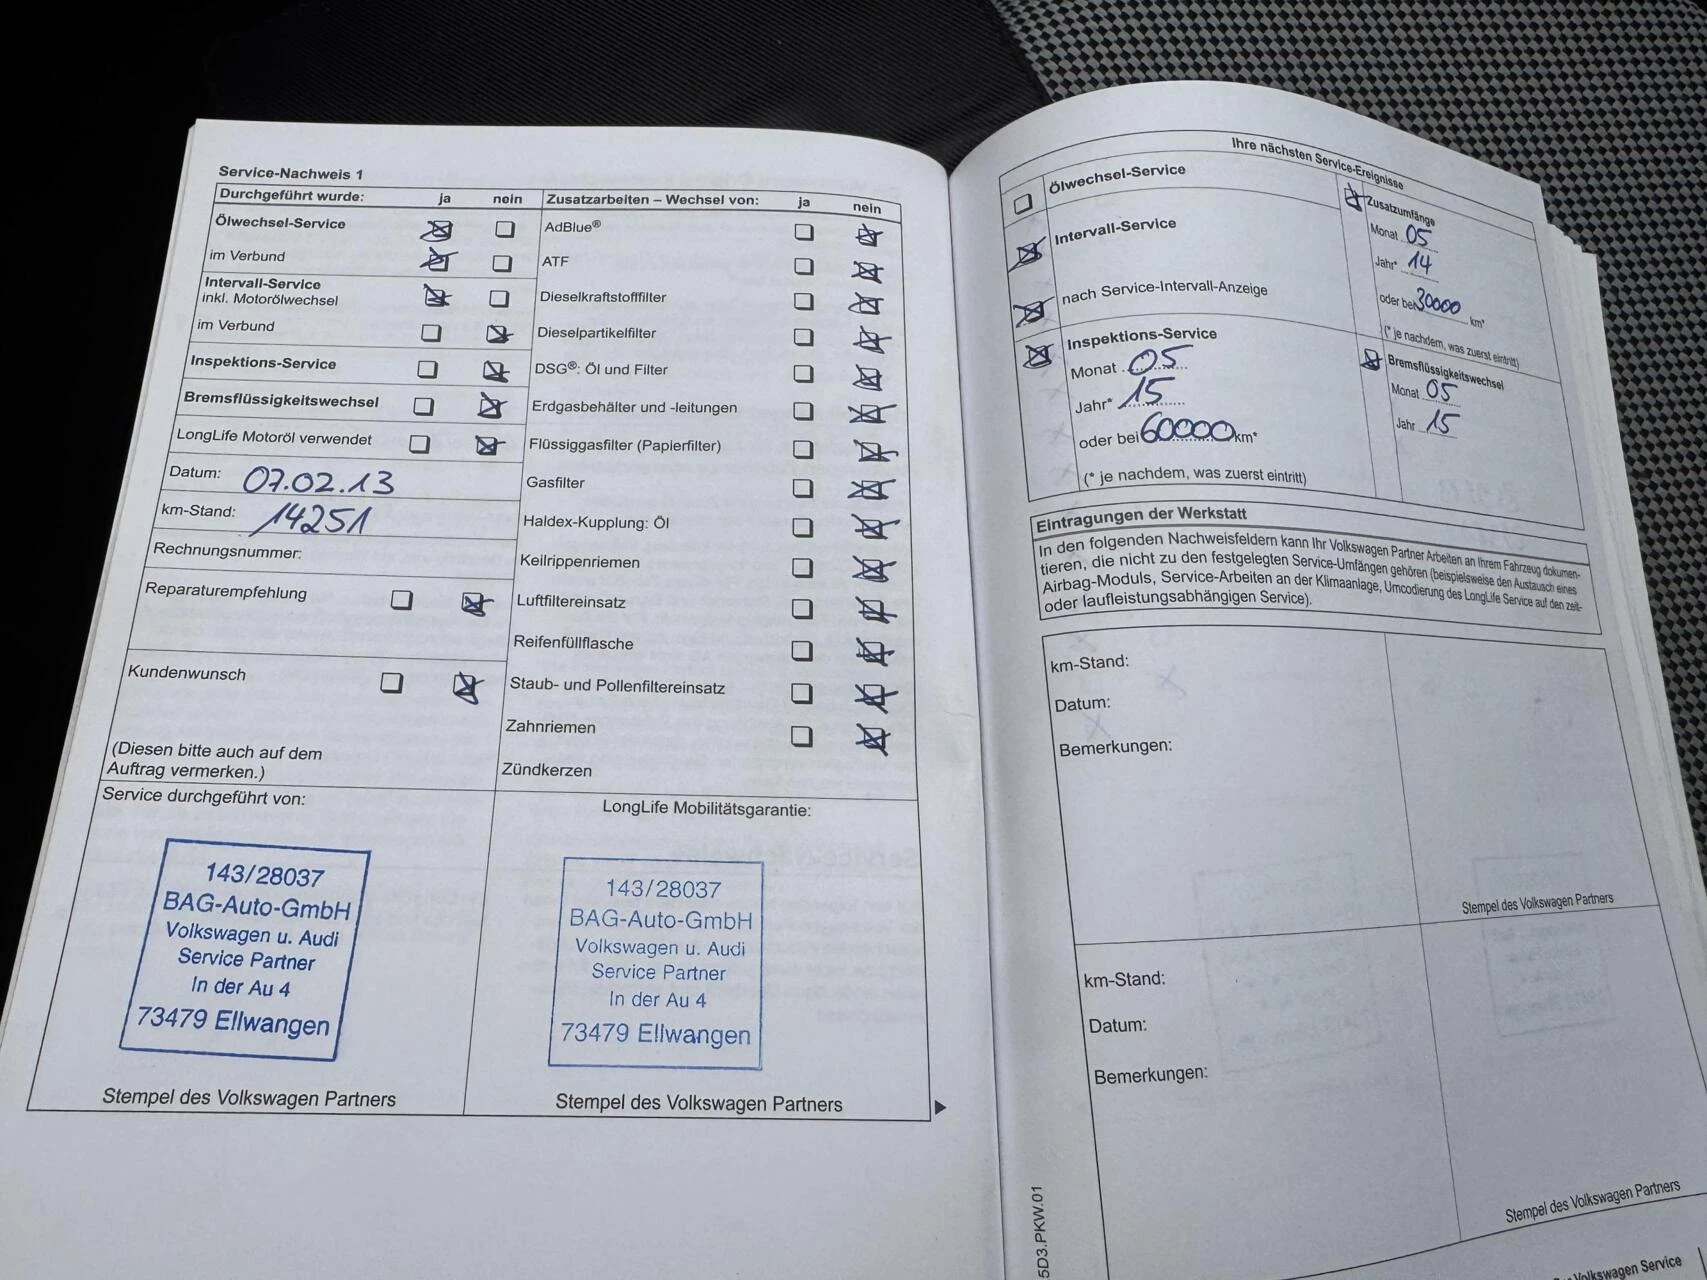 Service-Nachweis 1
Durchgeführt wurde: ja nein
Ölwechsel-Service
im Verbund
Intervall-Service
inkl. Motorölwechsel
im Verbund
Inspektions-Service
Bremsflüssigkeitswechsel
LongLife Motoröl verwendet
Datum: 07.02.13
km-Stand: 14251
Rechnungsnummer:
Reparaturempfehlung
Kundenwunsch
(Diesen bitte auch auf dem
Auftrag vermerken.)
Zusatzarbeiten – Wechsel von: ja nein
AdBlue®
ATF
Dieselkraftstofffilter
Dieselpartikelfilter
DSG®: Öl und Filter
Erdgasbehälter und -leitungen
Flüssiggasfilter (Papierfilter)
Gasfilter
Haldex-Kupplung: Öl
Keilrippenriemen
Luftfiltereinsatz
Reifenfüllflasche
Staub- und Pollenfiltereinsatz
Zahnriemen
Zündkerzen
Service durchgeführt von:
143/28037
BAG-Auto-GmbH
Volkswagen u. Audi
Service Partner
In der Au 4
73479 Ellwangen
Stempel des Volkswagen Partners
LongLife Mobilitätsgarantie:
143/28037
BAG-Auto-GmbH
Volkswagen u. Audi
Service Partner
In der Au 4
73479 Ellwangen
Stempel des Volkswagen Partners
Ihre nächsten Service-Ereignisse
Ölwechsel-Service
Intervall-Service
nach Service-Intervall-Anzeige
Inspektions-Service
Monat 05
Jahr* 15
oder bei 60000 km*
(* je nachdem, was zuerst eintritt)
Zusatzumfänge
Monat 05
Jahr* 14
oder bei 30000 km*
(* je nachdem, was zuerst eintritt)
Bremsflüssigkeitswechsel
Monat 05
Jahr 15
Eintragungen der Werkstatt
In den folgenden Nachweisfeldern kann Ihr Volkswagen Partner Arbeiten an Ihrem Fahrzeug dokumen-
tieren, die nicht zu den festgelegten Service-Umfängen gehören (beispielsweise den Austausch eines
Airbag-Moduls, Service-Arbeiten an der Klimaanlage, Umcodierung des LongLife Service auf den zeit-
oder laufleistungsabhängigen Service).
km-Stand:
Datum:
Bemerkungen:
Stempel des Volkswagen Partners
km-Stand:
Datum:
Bemerkungen:
Stempel des Volkswagen Partners
5D3.PKW.01
Volkswagen Service